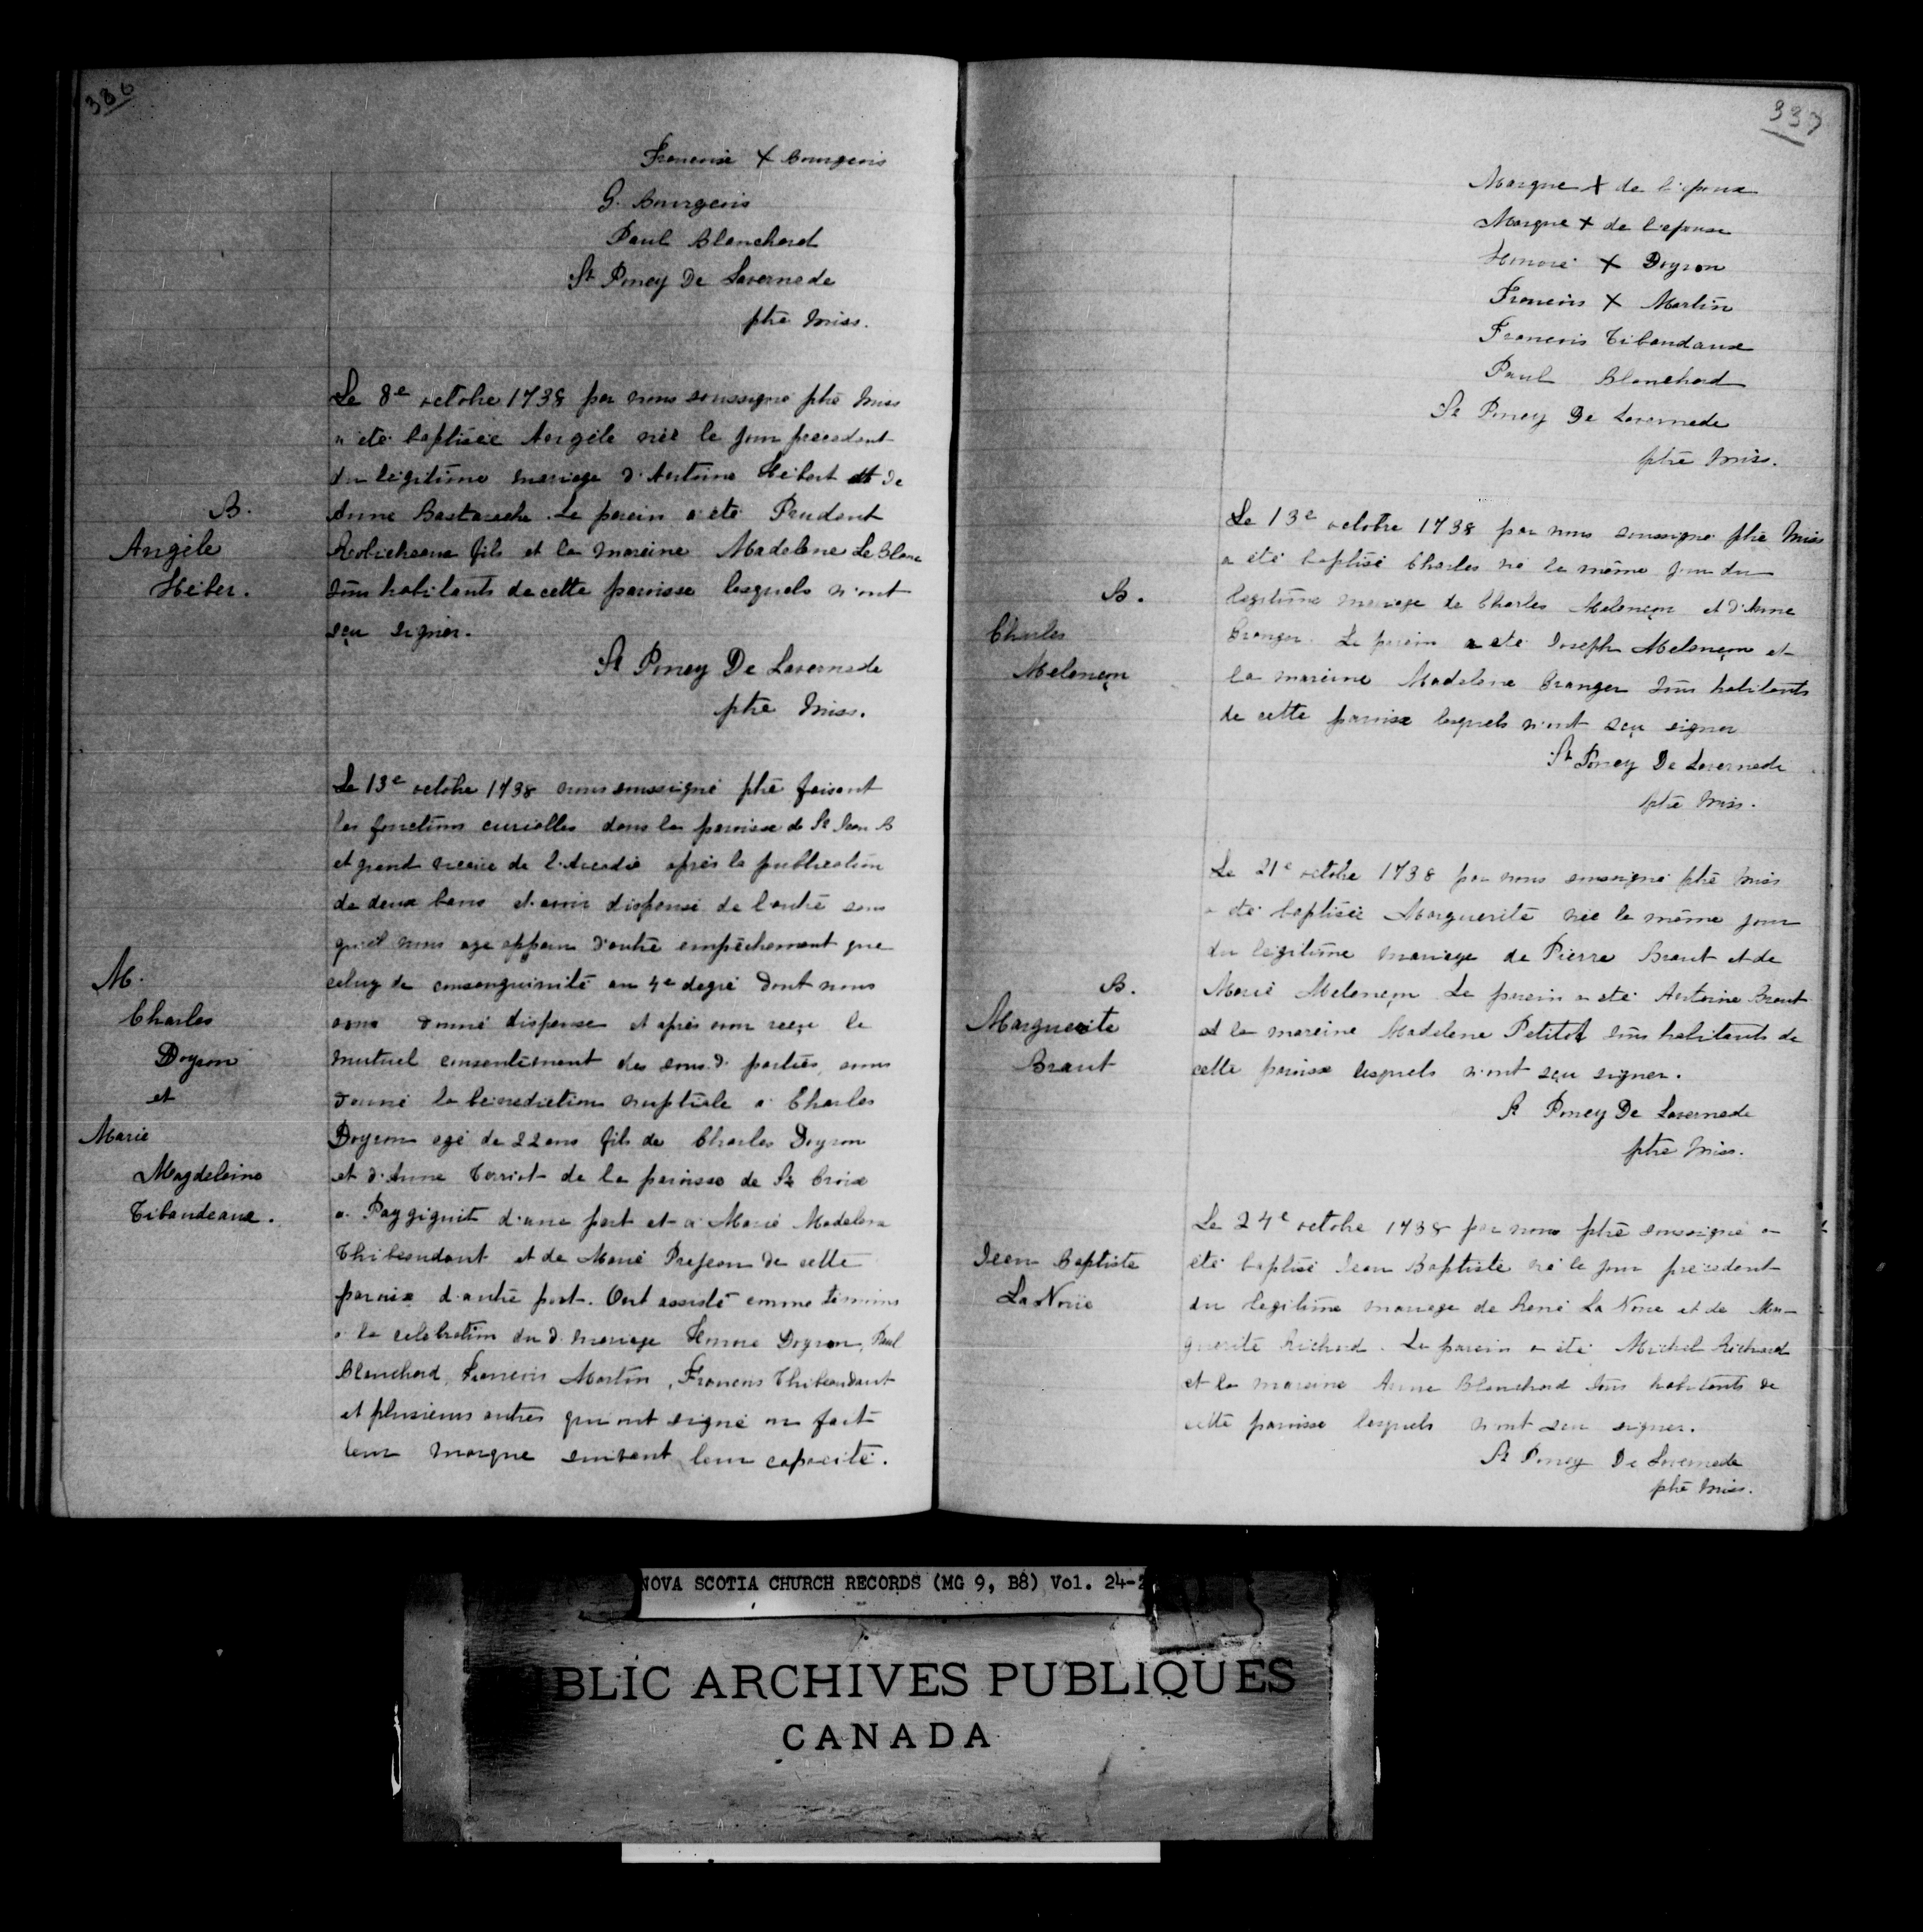 336
Francoise X Bourgeois
G. Bourgeois
Paul Blanchard
St Poncy De Lavernede
ptre Miss.
Le 8e octobre 1738 par nous soussigné ptre Miss
a été baptisée Angèle née le jour precedent
du légitime mariage d'Antoine Hébert et de
B.
Anne Bastarache. Le parein a été Prudent
Angèle
Robicheaux fils et la mareine Madelene Le Blanc
Héber.
Tous habitants de cette paroisse lesquels n'ont
sçu signer.
St Poncy De Lavernede
ptre Miss.
Le 13e octobre 1738 nous soussigné ptre faisant
les fonctions curialles dans la paroisse de St Jean B
et grand vicaire de l'Acadie après la publication
de deux bans et avoir dispensé de l'autre sans
qu'il nous aye apparu d'autre empêchement que
M.
celuy de consanguinité au 4e degré dont nous
Charles
avons donné dispense et après avoir reçu le
Doyron
mutuel consentement des sous d. parties, avons
et
donné la bénédiction nuptiale à Charles
Marie
Doyron agé de 22 ans fils de Charles Doyron
Magdeleine
et d'Anne Terriot de la paroisse de Ste Croix
Tibaudeaux.
a Paygiguit d'une part et à Marie Madelene
Thibeaudaut et de Marie Prejean de cette
paroisse d'autre part. Ont assisté comme témoins
a la celebration du d. mariage Honoré Doyron, Paul
Blanchard, Francois Martin, Francois Thibeaudaut
et plusieurs autres qui ont signé ou fait
leur marque suivant leur capacité.
337
Marque X de l'epoux
Marque X de l'epouse
Honoré X Doyron
Francois X Martin
Francois Tibaudaux
Paul Blanchard
St Poncy De Lavernede
ptre Miss.
Le 13e octobre 1738 par nous soussigné ptre Miss
a été baptisé Charles né le même jour du
B.
légitime mariage de Charles Melançon et d'Anne
Charles
Granger. Le parein a été Joseph Melançon et
Melançon
la mareine Madelene Granger tous habitants
de cette paroisse lesquels n'ont sçu signer
St Poncy De Lavernede
ptre Miss.
Le 21e octobre 1738 par nous soussigné ptre Miss
a été baptisée Marguerite née le même jour
du légitime mariage de Pierre Braut et de
B.
Marie Melançon. Le parein a été Antoine Braut
Marguerite
et la mareine Madelene Petitot tous habitants de
Braut
cette paroisse lesquels n'ont sçu signer.
St Poncy De Lavernede
ptre Miss.
Le 24e octobre 1738 par nous ptre soussigné a
Jean Baptiste
été baptisé Jean Baptiste né le jour precedent
La Noüe
du légitime mariage de René La Noue et de Mar-
guerite Richard. Le parein a été Michel Richard
et la mareine Anne Blanchard tous habitants de
cette paroisse lesquels n'ont sçu signer.
St Poncy De Lavernede
ptre Miss.
NOVA SCOTIA CHURCH RECORDS (MG 9, B8) Vol. 24-2
BLIC ARCHIVES PUBLIQUES
CANADA